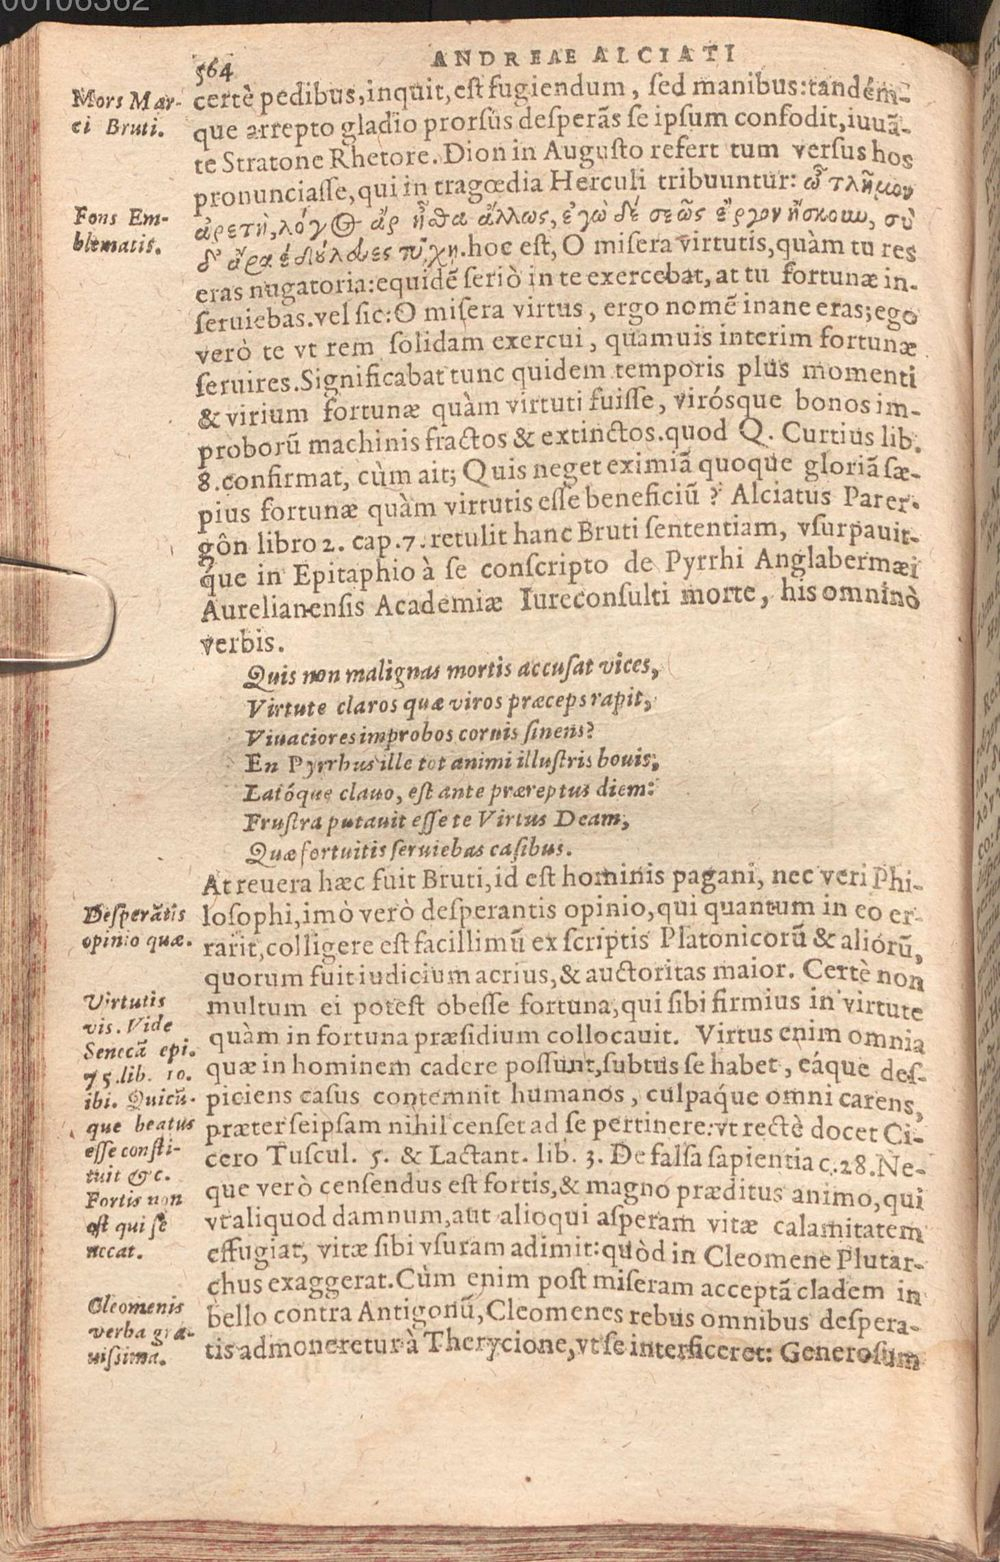 00106362
564
ANDREAE ALCIATI
Mors Mar-
ci Bruti.
certè pedibus, inquit, est fugiendum, sed manibus: tandém-
que arrepto gladio prorsùs desperãs se ipsum confodit, iuuã-
te Stratone Rhetore. Dion in Augusto refert tum versus hos
pronunciasse, qui in tragœdia Herculi tribuuntur: ὦ τλῆμον
Fons Em-
blematis.
ἀρετὴ, λόγος ἄρ ἦσθα ἄλλως, ἐγὼ δέ σε ὡς ἔργον ἤσκουν, σὺ
δ' ἄρα ἐδούλευες τύχῃ. hoc est, O misera virtutis, quàm tu res
eras nugatoria: equidẽ seriò in te exercebat, at tu fortunæ in-
seruiebas. vel sic: O misera virtus, ergo nomẽ inane eras; ego
verò te vt rem solidam exercui, quamuis interim fortunæ
seruires. Significabat tunc quidem temporis plus momenti
& virium fortunæ quàm virtuti fuisse, virósque bonos im-
proborũ machinis fractos & extinctos. quod Q. Curtius lib.
8. confirmat, cùm ait; Quis neget eximiã quoque gloriã sæ-
pius fortunæ quàm virtutis esse beneficiũ? Alciatus Parer-
gôn libro 2. cap. 7. retulit hanc Bruti sententiam, vsurpauit-
que in Epitaphio à se conscripto de Pyrrhi Anglabermæi
Aurelianensis Academiæ Iureconsulti morte, his omninò
verbis.
Quis non malignas mortis accusat vices,
Virtute claros quæ viros præceps rapit,
Viuaciores improbos cornis sinens?
En Pyrrhus ille tot animi illustris bouis,
Latóque clauo, est ante præreptus diem:
Frustra putauit esse te Virtus Deam,
Quæ fortuitis seruiebas casibus.
At reuera hæc fuit Bruti, id est hominis pagani, nec veri Phi-
Desperãtis
opinio quæ.
losophi, imò verò desperantis opinio, qui quantum in eo er-
rarit, colligere est facillimũ ex scriptis Platonicorũ & aliorũ,
quorum fuit iudicium acrius, & auctoritas maior. Certè non
Virtutis
vis. Vide
Senecã epi.
75. lib. 10.
ibi. Quicũ-
que beatus
esse consti-
tuit &c.
multum ei potest obesse fortuna, qui sibi firmius in virtute
quàm in fortuna præsidium collocauit. Virtus enim omnia
quæ in hominem cadere possunt, subtus se habet, eáque des-
piciens casus contemnit humanos, culpáque omni carens,
præter seipsam nihil censet ad se pertinere: vt rectè docet Ci-
cero Tuscul. 5. & Lactant. lib. 3. De falsa sapientia c. 28. Ne-
Fortis non
est qui se
necat.
que verò censendus est fortis, & magno præditus animo, qui
vt aliquod damnum, aut alioqui asperam vitæ calamitatem
effugiat, vitæ sibi vsuram adimit: quòd in Cleomene Plutar-
chus exaggerat. Cùm enim post miseram acceptã cladem in
Cleomenis
verba gra-
uissima.
bello contra Antigonũ, Cleomenes rebus omnibus despera-
tis admoneretur à Therycione, vt se interficeret: Generosum